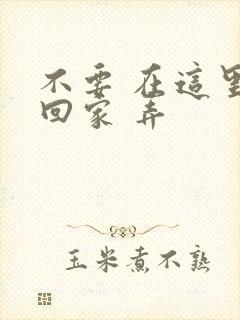 不要 在這
回家 弄
玉米煮不熟